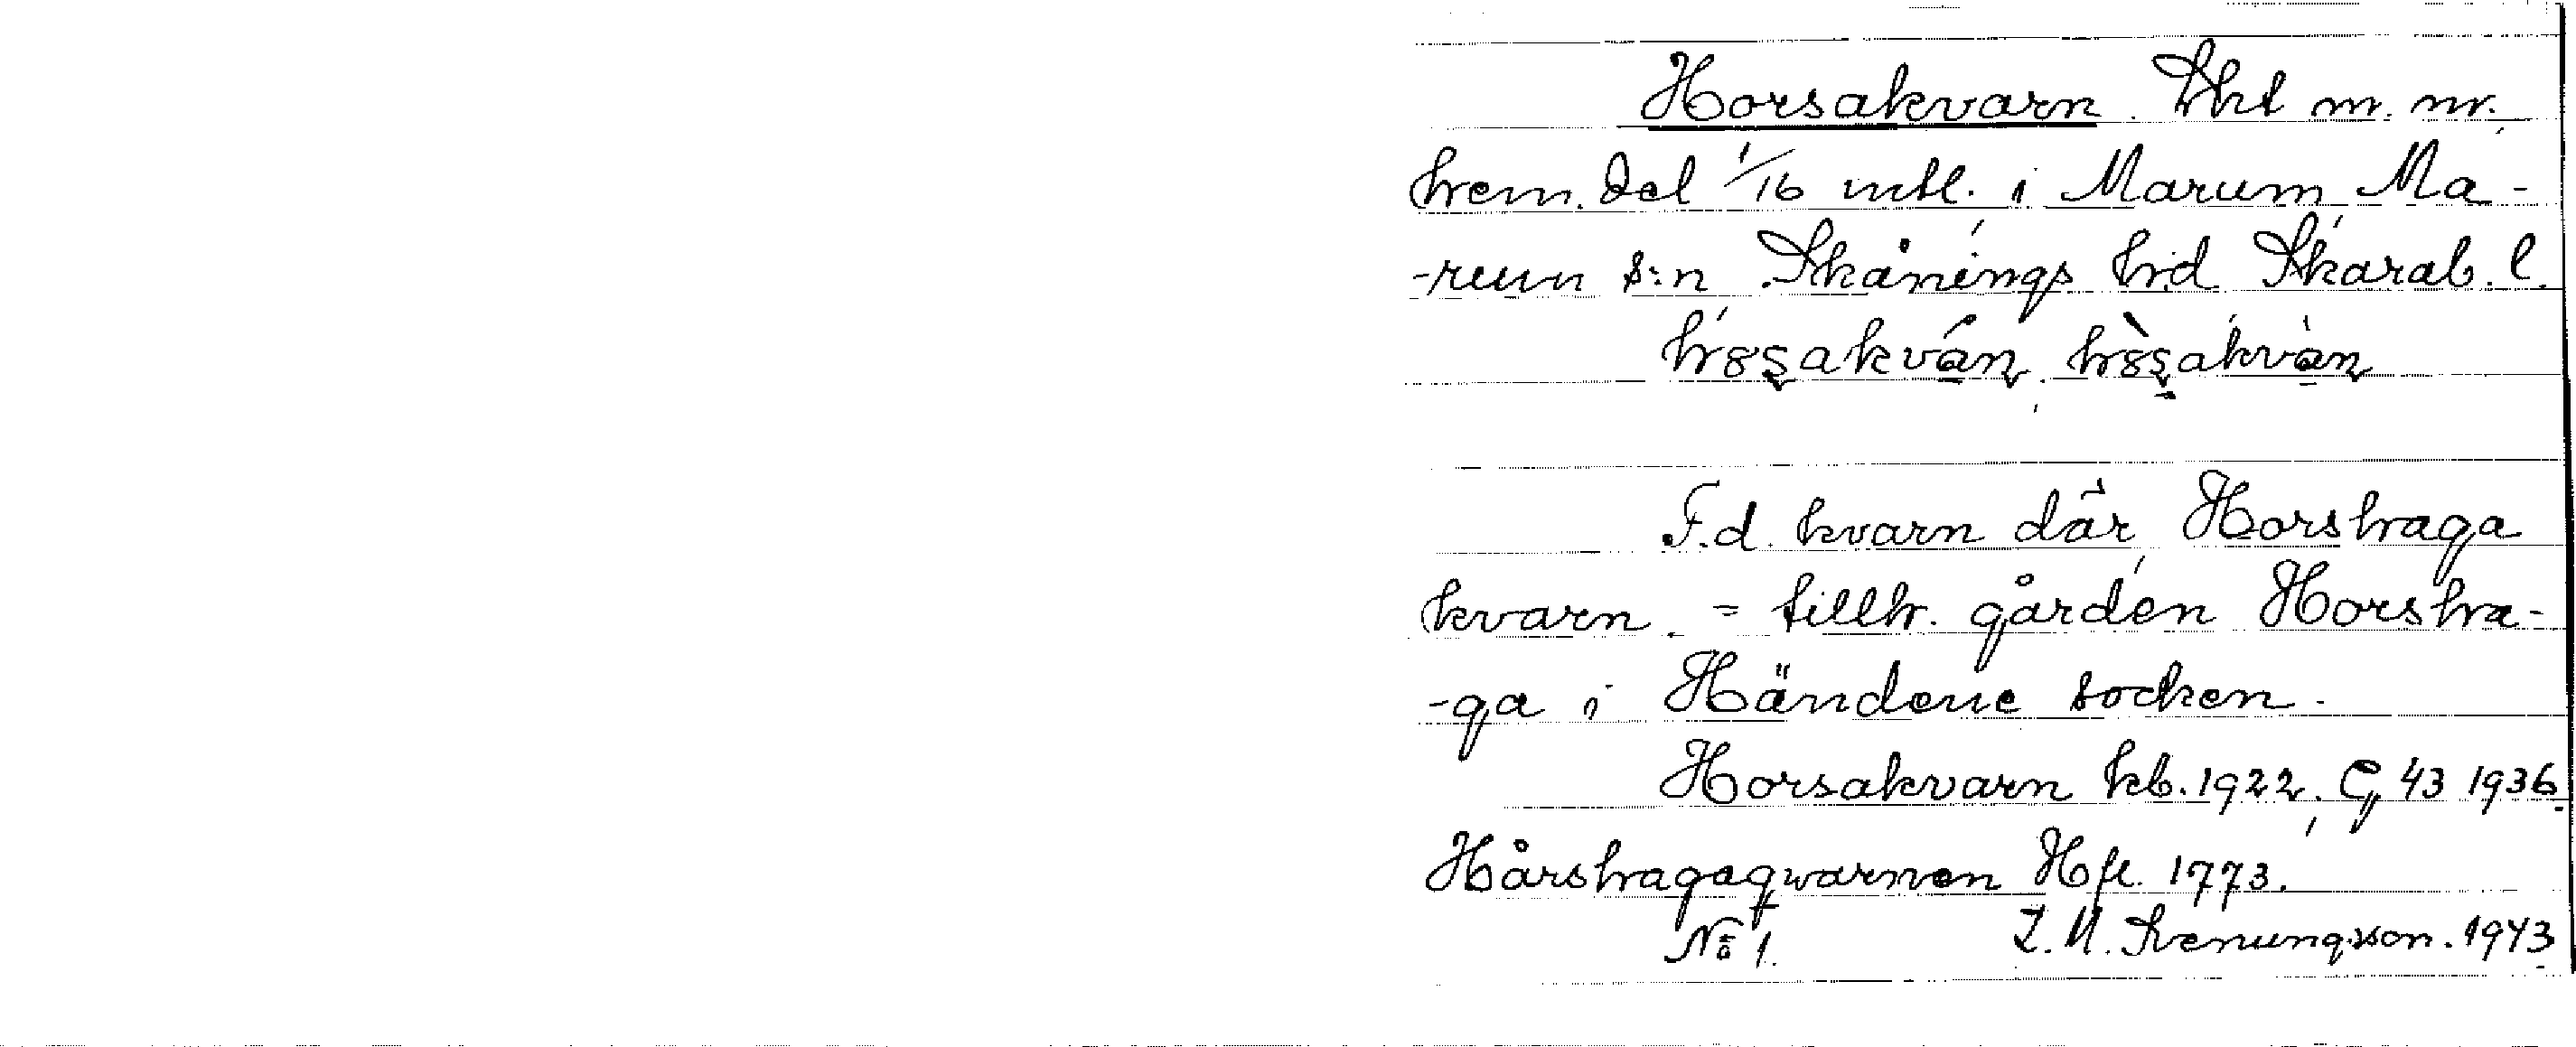 Horsakvarn. Lht m. nr.
hem. del 1/16 mtl. i Marum, Ma-
-rum s:n Skånings hd Skarab. l.
F.d. kvarn där, Horshaga
kvarn = tillh. gården Horsha-
-ga i Händene socken.
Horsakvarn kb. 1922. G, 43 1936.
Hårshagaqwarnen Hfl. 1773.
No 1. I. M. Svenungsson. 1943